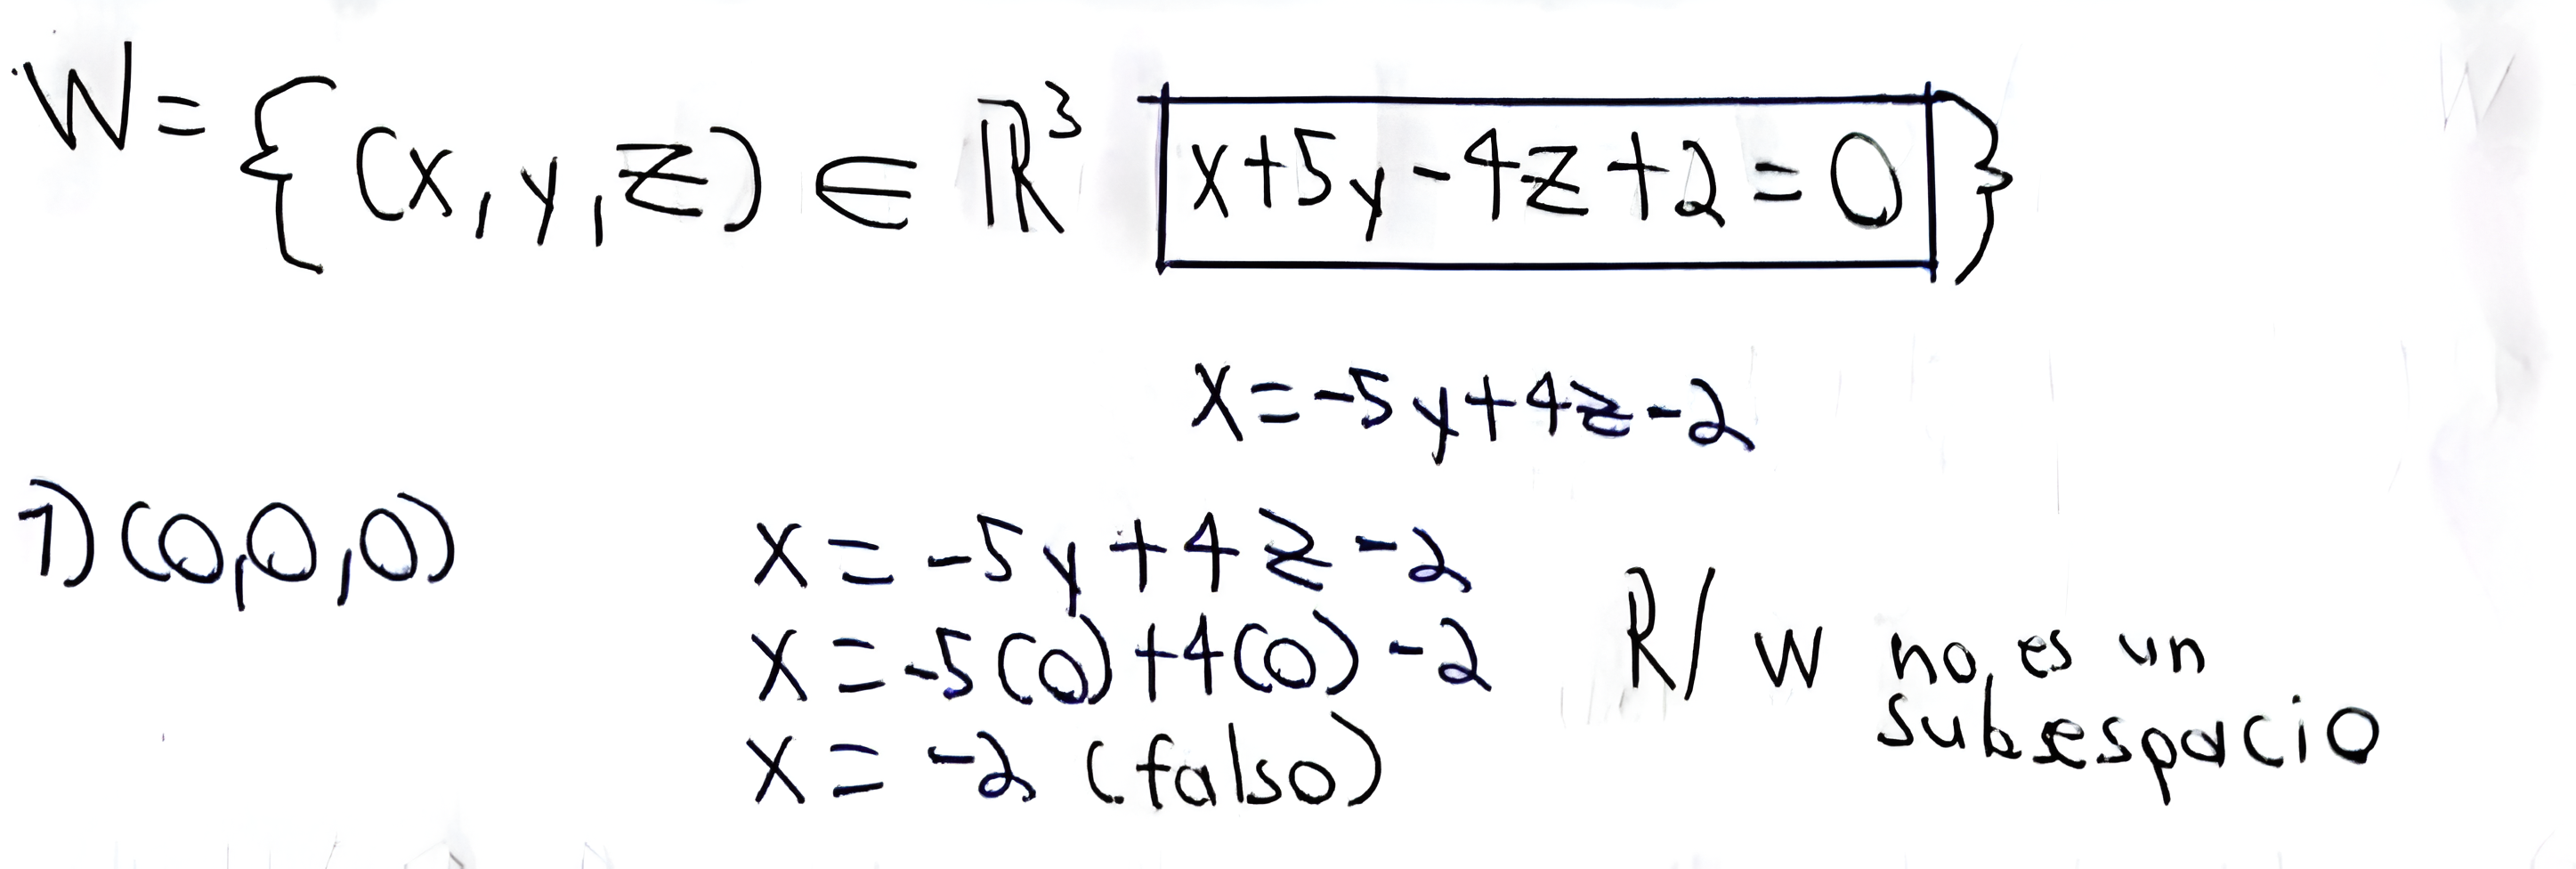 W = { (x, y, z) ∈ ℝ³ x+5y-4z+2=0 }
x=-5y+4z-2
1) (0,0,0)
x = -5y+4z-2
x = -5(0)+4(0)-2
x = -2 (falso)
R/ W no es un
subsespacio